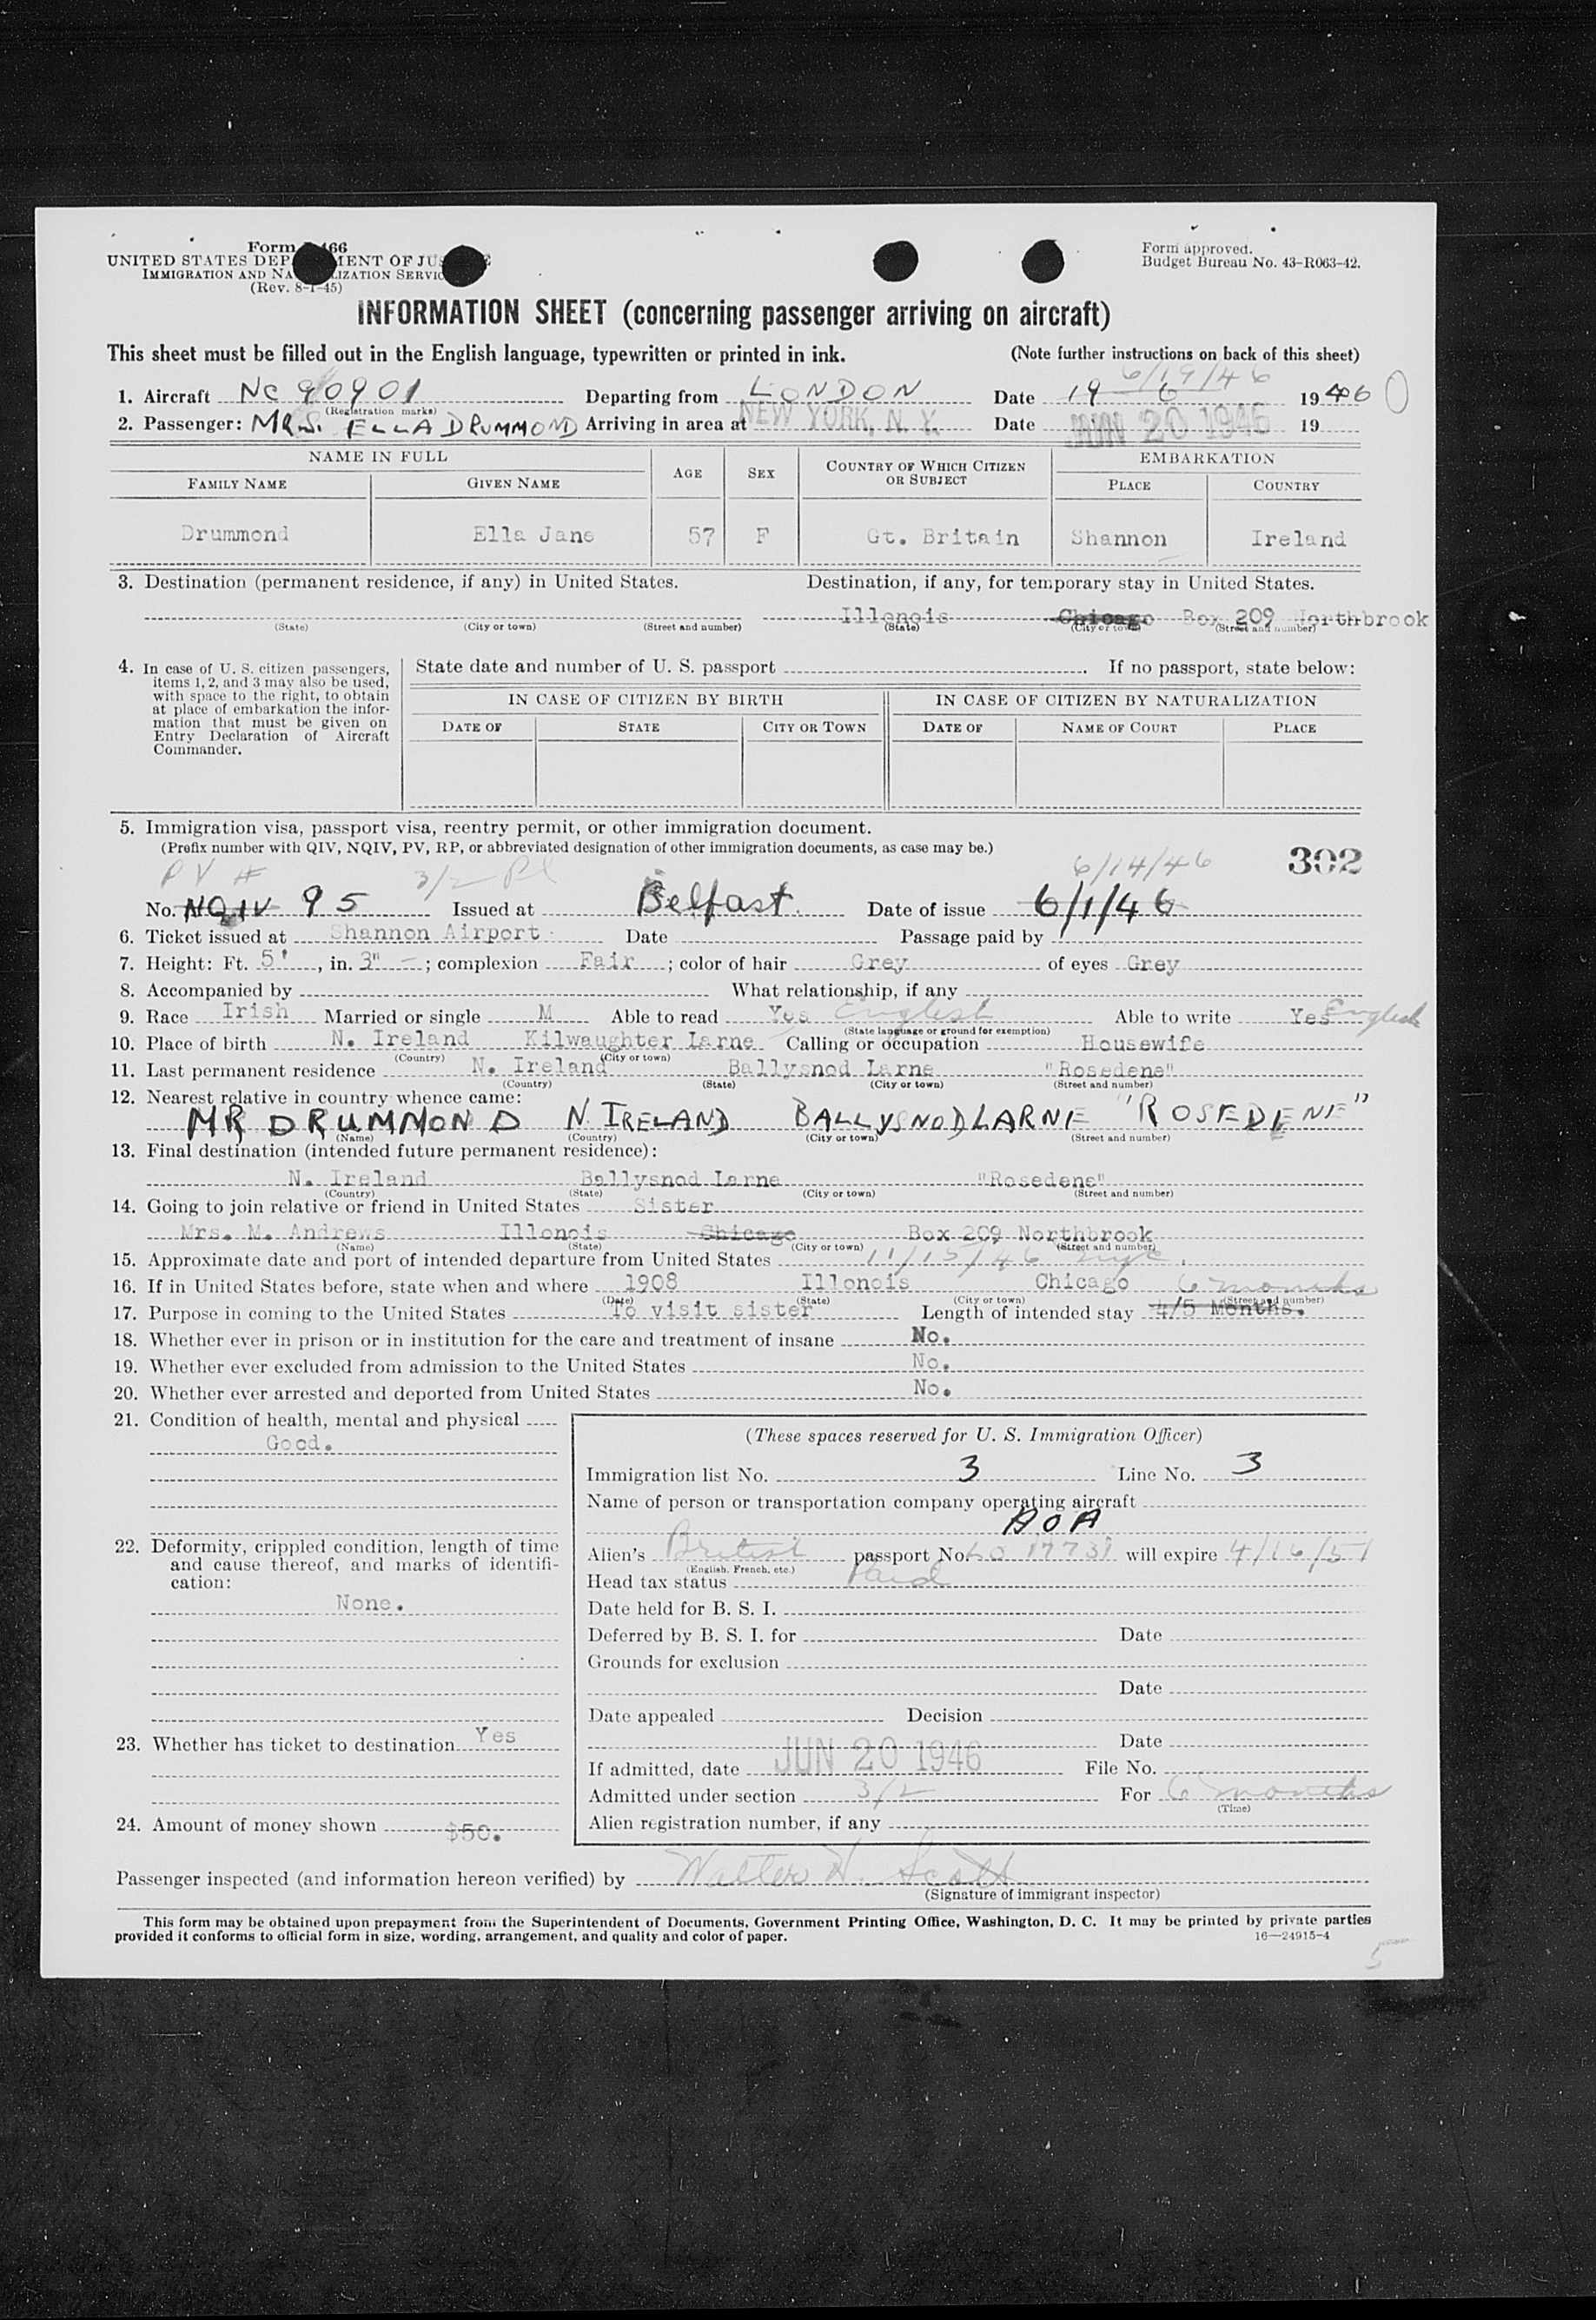 Form 466
UNITED STATES DEPARTMENT OF JUSTICE
IMMIGRATION AND NATURALIZATION SERVICE
(Rev. 8-1-45)
Form approved.
Budget Bureau No. 43-R063-42.
INFORMATION SHEET (concerning passenger arriving on aircraft)
This sheet must be filled out in the English language, typewritten or printed in ink. (Note further instructions on back of this sheet)
6/19/46
1. Aircraft NC 90901 Departing from LONDON Date 19 6 1946
(Registration marks)
2. Passenger: MRS. ELLA DRUMMOND Arriving in area at NEW YORK, N. Y. Date JUN 20 1946 19
NAME IN FULL AGE SEX COUNTRY OF WHICH CITIZEN OR SUBJECT EMBARKATION
FAMILY NAME GIVEN NAME PLACE COUNTRY
Drummond Ella Jane 57 F Gt. Britain Shannon Ireland
3. Destination (permanent residence, if any) in United States. Destination, if any, for temporary stay in United States.
Illenois Chicago Box 209 Northbrook
(State) (City or town) (Street and number) (State) (City or town) (Street and number)
4. In case of U. S. citizen passengers, items 1, 2, and 3 may also be used, with space to the right, to obtain at place of embarkation the information that must be given on Entry Declaration of Aircraft Commander.
State date and number of U. S. passport If no passport, state below:
IN CASE OF CITIZEN BY BIRTH IN CASE OF CITIZEN BY NATURALIZATION
DATE OF STATE CITY OR TOWN DATE OF NAME OF COURT PLACE
5. Immigration visa, passport visa, reentry permit, or other immigration document.
(Prefix number with QIV, NQIV, PV, RP, or abbreviated designation of other immigration documents, as case may be.)
302
PV # 3/2 6/14/46
No. NQIV 95 Issued at Belfast. Date of issue 6/1/46
6. Ticket issued at Shannon Airport Date Passage paid by
7. Height: Ft. 5', in. 3" ; complexion Fair ; color of hair Grey of eyes Grey
8. Accompanied by What relationship, if any
9. Race Irish Married or single M Able to read Yes English Able to write Yes English
(State language or ground for exemption)
10. Place of birth N. Ireland Kilwaughter Larne Calling or occupation Housewife
(Country) (City or town)
11. Last permanent residence N. Ireland Ballysnod Larne "Rosedene"
(Country) (State) (City or town) (Street and number)
12. Nearest relative in country whence came:
MR DRUMMOND N. IRELAND BALLYSNOD LARNE "ROSEDENE"
(Name) (Country) (City or town) (Street and number)
13. Final destination (intended future permanent residence):
N. Ireland Ballysnod Larne "Rosedene"
(Country) (State) (City or town) (Street and number)
14. Going to join relative or friend in United States Sister
Mrs. M. Andrews Illonois Chicago Box 209 Northbrook
(Name) (State) (City or town) (Street and number)
15. Approximate date and port of intended departure from United States 11/15/46 nyc.
16. If in United States before, state when and where 1908 Illonois Chicago
(Date) (State) (City or town) (Street and number)
6 months
17. Purpose in coming to the United States To visit sister Length of intended stay 4/5 Months.
18. Whether ever in prison or in institution for the care and treatment of insane No.
19. Whether ever excluded from admission to the United States No.
20. Whether ever arrested and deported from United States No.
21. Condition of health, mental and physical
Good.
22. Deformity, crippled condition, length of time and cause thereof, and marks of identification:
None.
23. Whether has ticket to destination Yes
24. Amount of money shown $50.
(These spaces reserved for U. S. Immigration Officer)
Immigration list No. 3 Line No. 3
Name of person or transportation company operating aircraft
AOA
Alien's British passport No. LO 17731 will expire 4/16/51
(English, French, etc.)
Head tax status Paid
Date held for B. S. I.
Deferred by B. S. I. for Date
Grounds for exclusion
Date
Date appealed Decision
Date
If admitted, date JUN 20 1946 File No.
Admitted under section 3/2 For 6 months
(Time)
Alien registration number, if any
Passenger inspected (and information hereon verified) by Walter W. Scott
(Signature of immigrant inspector)
This form may be obtained upon prepayment from the Superintendent of Documents, Government Printing Office, Washington, D. C. It may be printed by private parties
provided it conforms to official form in size, wording, arrangement, and quality and color of paper. 16—24915-4
5